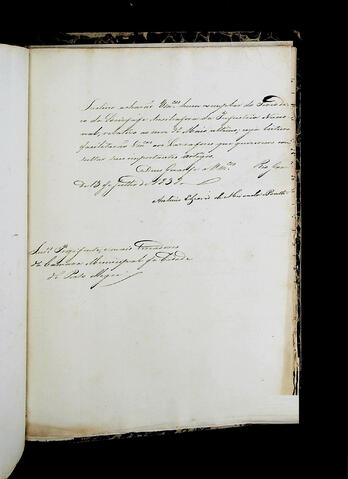 Incluso acharão Vm.ces hum exemplar do Periodi-
co da Sociedade Auxiliadora da Industria Nacio-
nal, relativo ao mez de Maio ultimo, cuja leitura
facilitarão Vm.ces aos Lavradores que quizerem con-
sultar tão importantes artigos.
Deos Guarde a Vm.ces
de 13 de Julho de 1839.
Antonio Elzeario de Miranda e Britto
Snr.s Prezidente, e mais Vereadores
da Camara Municipal da Cidade
de Porto Alegre